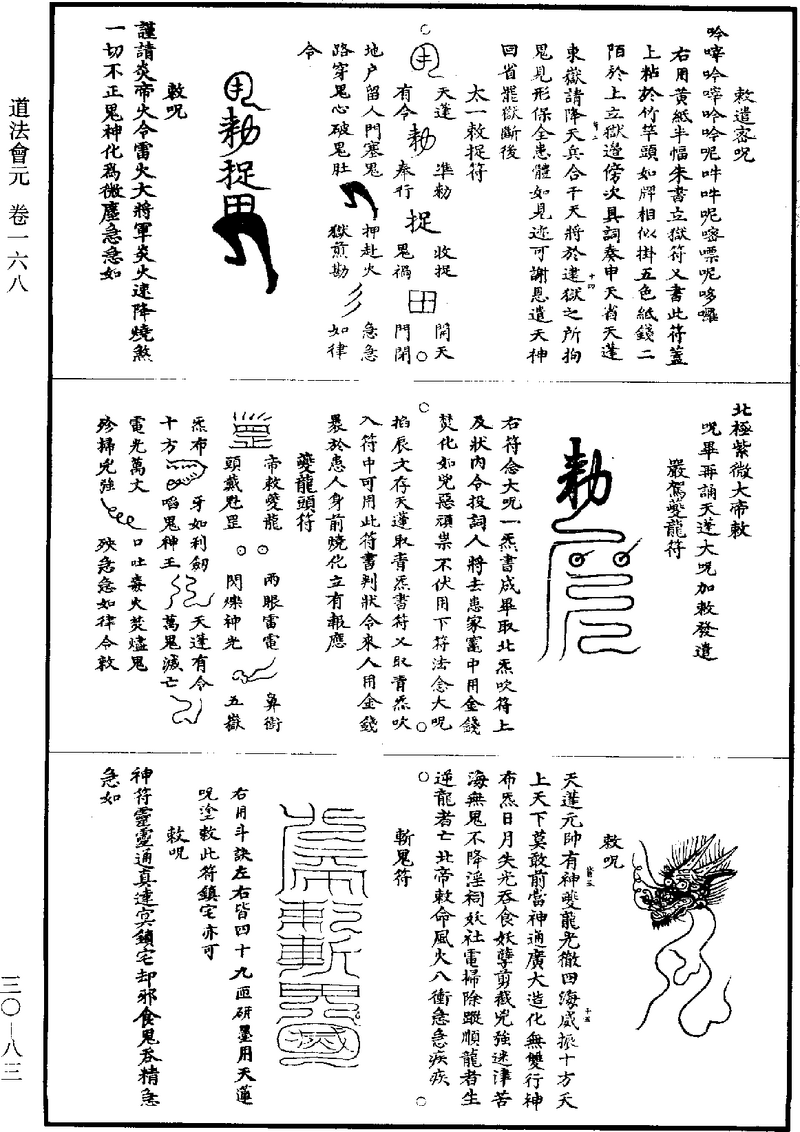 道法會元 卷一六八
三〇—八三
敕遣密呪
吽嘩吟嘩吟吟呢吽吽呢嘧嘌呢哆囉
右用黃紙半幅朱書立獄符又書此符蓋
上粘於竹竿頭如牌相似掛五色紙錢二
陌於上立獄邊傍次具詞奏申天省天蓬
東嶽請降天兵合干天將於建獄之所拘
鬼見形保全患體如見迹可謝恩遣天神
回省罷獄斷後
太一敕捉符
天蓬 準勑 收捉 開天
有令 勑 奉行 捉 鬼禍 田 門閉
地户留人門塞鬼 押赴火 急急
路穿鬼心破鬼肚 獄煎勘 如律
令
勑捉田
敕呪
謹請炎帝火令雷火大將軍炎火速降燒煞
一切不正鬼神化為微塵急急如
北極紫微大帝敕
呪畢再誦天蓬大呪加敕發遣
嚴駕夔龍符
勑
右符念大呪一炁書成畢取北炁吹符上
及狀內令投詞人將去患家竈中用金錢
焚化如兇惡頑祟不伏用下符法念大呪
掐辰文存天蓬取青炁書符又取青炁吹
入符中可用此符書判狀令來人用金錢
褁於患人身前燒化立有報應
夔龍頭符
帝敕夔龍 兩眼雷電 鼻銜
頭戴魁罡 閃爍神光 五嶽
炁布 牙如利劒 天蓬有令
十方 啗鬼神王 萬鬼滅亡
電光萬丈 口吐毒火焚燼鬼
殄掃兇強 殃急急如律令敕
敕呪
天蓬元帥有神夔龍光徹四海威振十方天
上天下莫敢前當神通廣大造化無雙行神
布炁日月失光吞食妖孽剪截兇強迷津苦
海無鬼不降淫祠妖社電掃除蹤順龍者生
逆龍者亡北帝敕命風火八衝急急疾疾
斬鬼符
右用斗訣左右皆四十九匝研墨用天蓬
呪塗敕此符鎮宅亦可
敕呪
神符靈靈通真達冥鎮宅却邪食鬼吞精急
急如